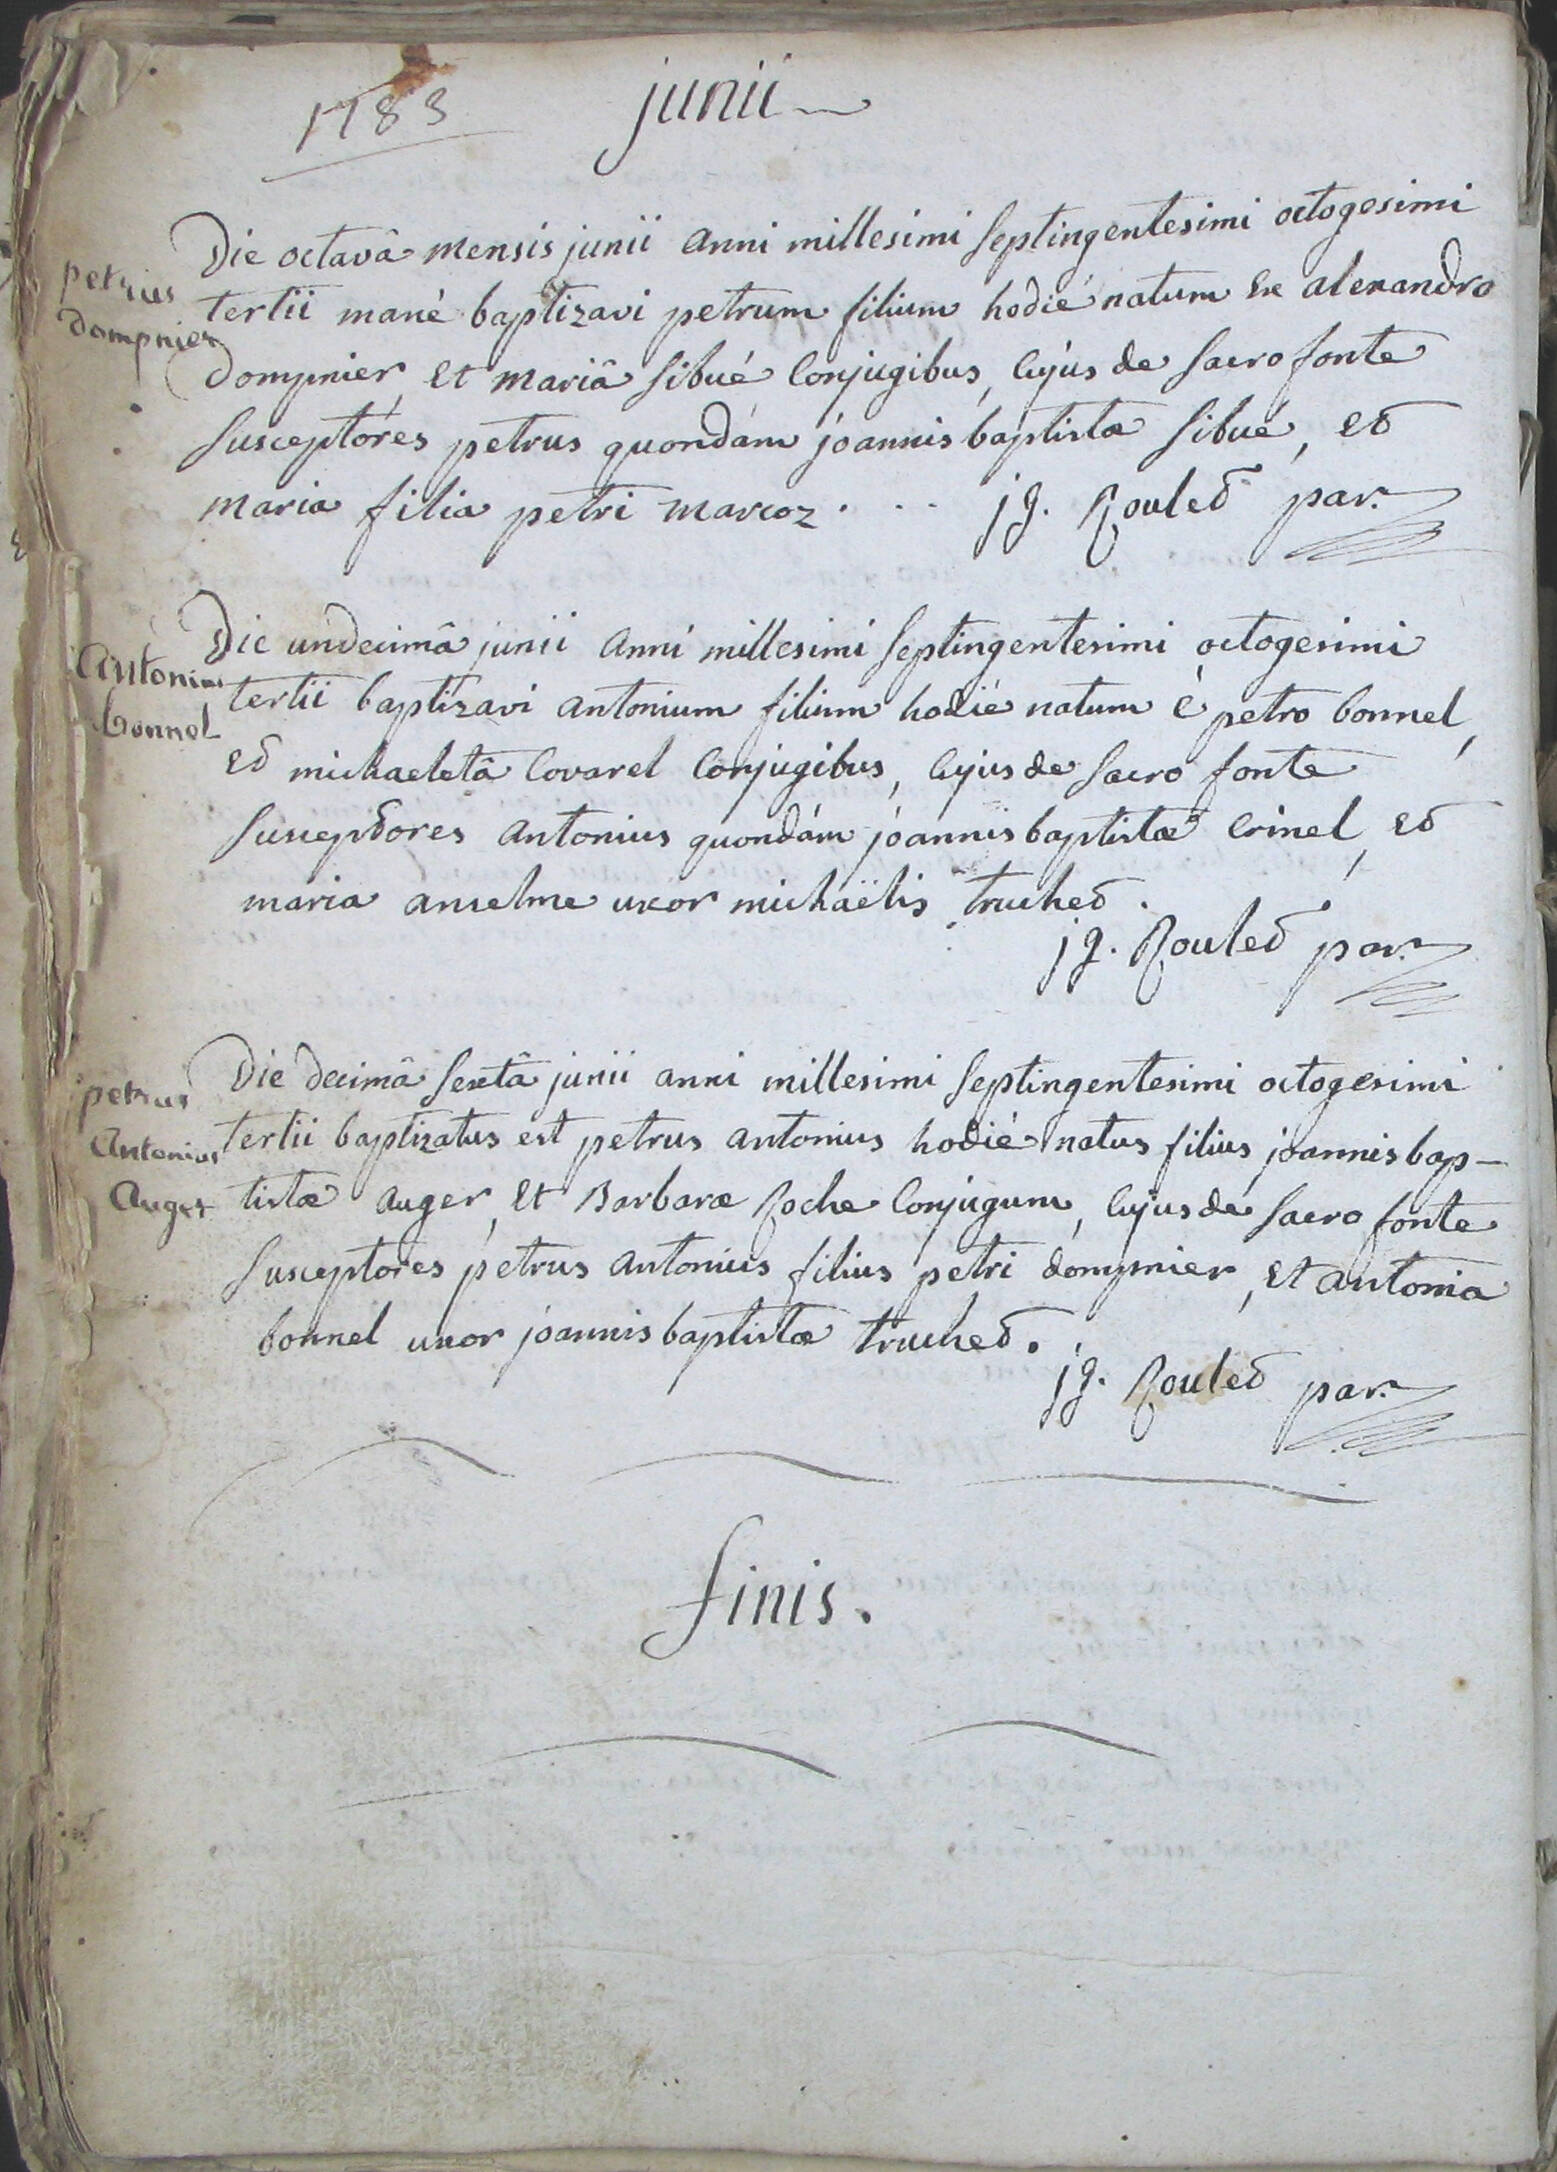 1783 junii
petrus
dompnier
Die octavâ mensis junii anni millesimi septingentesimi octogesimi
tertii manè baptizavi petrum filium hodiè natum ex alexandro
dompnier, et mariâ sibué conjugibus, cujus de sacro fonte
susceptóres petrus quondám joannis baptistæ sibué, et
maria filia petri marcoz . . . jg. Roulet par.
Antonius
bonnel
Die undecimâ junii anni millesimi septingentesimi octogesimi
tertii baptizavi antonium filium hodiè natum è petro bonnel,
et michaeletâ covarel conjugibus, cujus de sacro fonte
susceptores antonius quondám joannis baptistæ crinel, et
maria anselme uxor michaëlis truchet.
jg. Roulet par.
petrus
Antonius
Auger
Die decimâ sextâ junii anni millesimi septingentesimi octogesimi
tertii baptizatus est petrus antonius hodiè natus filius joannis bap-
tistæ auger, et Barbaræ Roche conjugum, cujus de sacro fonte
susceptores petrus antonius filius petri dompnier, et antonia
bonnel uxor joannis baptistæ truchet.
jg. Roulet par.
finis.